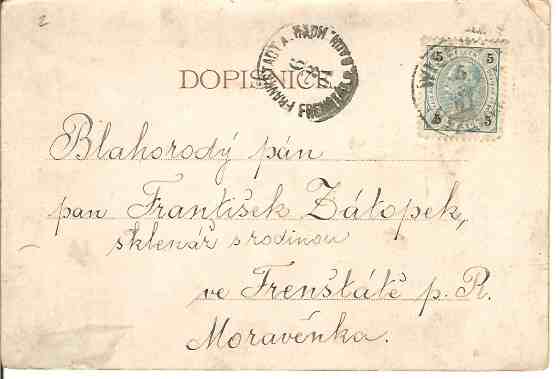 2
DOPISNICE
FRENŠTÁT
5 5
5 5
Blahorodý pán
pan František Zátopek,
sklenář s rodinou
ve Frenštátě p. R.
Moravénka.